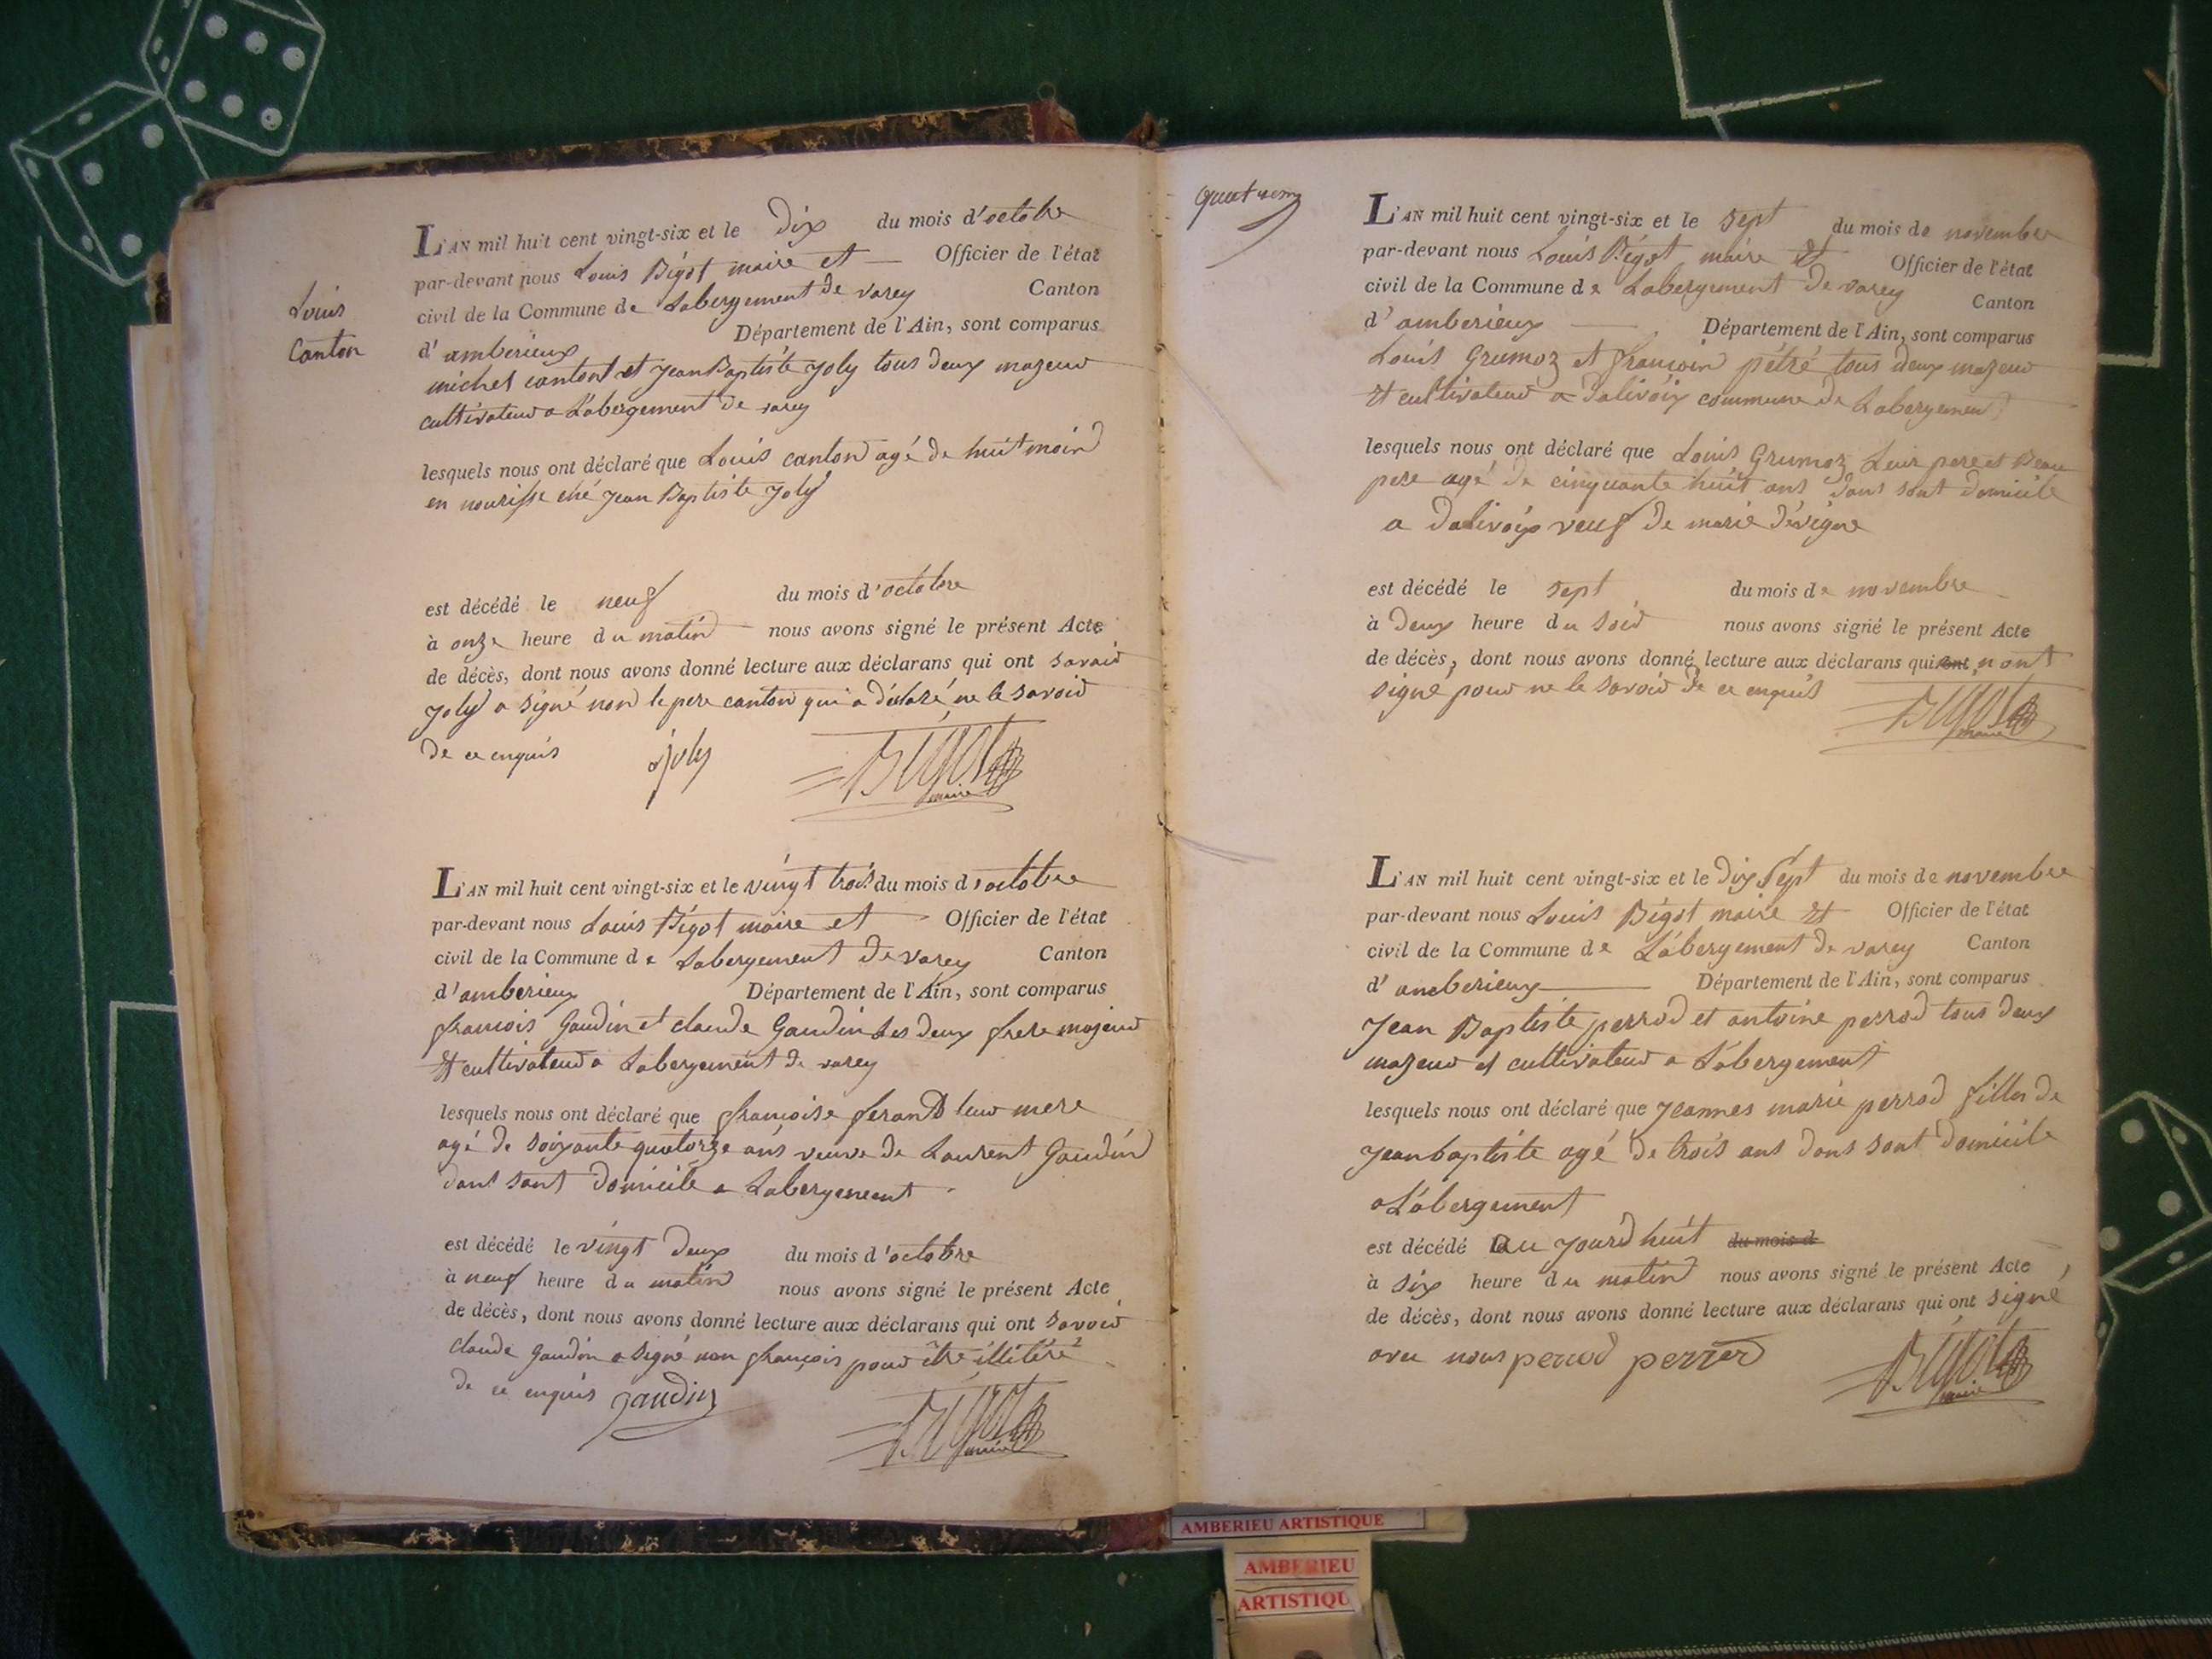 Louis
Canton
L'AN mil huit cent vingt-six et le dix du mois d'octobre
par-devant nous Louis Bigot maire et Officier de l'état
civil de la Commune de Labergement de varey Canton
d'amberieux Département de l'Ain, sont comparus
michel canton et jean Baptiste joly tous deux majeur
cultivateur a Labergement de varey
lesquels nous ont déclaré que Louis canton agé de huit moin
en nourisse ché jean Baptiste joly
est décédé le neuf du mois d'octobre
à onze heure du matin nous avons signé le présent Acte
de décès, dont nous avons donné lecture aux déclarans qui ont savoir
joly a signé non le pere canton qui a déclaré ne le savoir
de ce enquis joly Bigot
maire
L'AN mil huit cent vingt-six et le vingt trois du mois d'octobre
par-devant nous Louis Bigot maire et Officier de l'état
civil de la Commune de Labergement de varey Canton
d'amberieux Département de l'Ain, sont comparus
francois Gaudin et claude Gaudin les deux frere majeur
et cultivateur a Labergement de varey
lesquels nous ont déclaré que francoise ferand leur mere
agé de soixante quatorze ans veuve de Laurent Gaudin
dans sont domicile a Labergement
est décédé le vingt deux du mois d'octobre
à neuf heure du matin nous avons signé le présent Acte
de décès, dont nous avons donné lecture aux déclarans qui ont savoir
claude gaudin a signé non françois pour être illitéré
de ce enquis gaudin Bigot
maire
L'AN mil huit cent vingt-six et le sept du mois de novembre
par-devant nous Louis Bigot maire et Officier de l'état
civil de la Commune de Labergement de varey Canton
d'amberieux Département de l'Ain, sont comparus
Louis Grumoz et francoin pétré tous deux majeur
et cultivateur a dalivoix commune de Labergement
lesquels nous ont déclaré que Louis Grumoz Leur pere et Beau
pere agé de cinquante huit ans dans sont domicile
a dalivoix veuf de marie dévigne
est décédé le sept du mois de novembre
à deux heure du soir nous avons signé le présent Acte
de décès, dont nous avons donné lecture aux déclarans qui ont n'ont
signé pour ne le savoir de ce enquis Bigot
maire
L'AN mil huit cent vingt-six et le dix sept du mois de novembre
par-devant nous Louis Bigot maire et Officier de l'état
civil de la Commune de Labergement de varey Canton
d'amberieux Département de l'Ain, sont comparus
jean Baptiste perrod et antoine perrod tous deux
majeur et cultivateur a Labergement
lesquels nous ont déclaré que jeannes marie perrod filles de
jean baptiste agé de trois ans dans sont domicile
a Labergement
est décédé au jourd huit du mois d
à six heure du matin nous avons signé le présent Acte
de décès, dont nous avons donné lecture aux déclarans qui ont signé
avec nous perrod perrod Bigot
maire
AMBERIEU ARTISTIQUE
AMBERIEU
ARTISTIQU